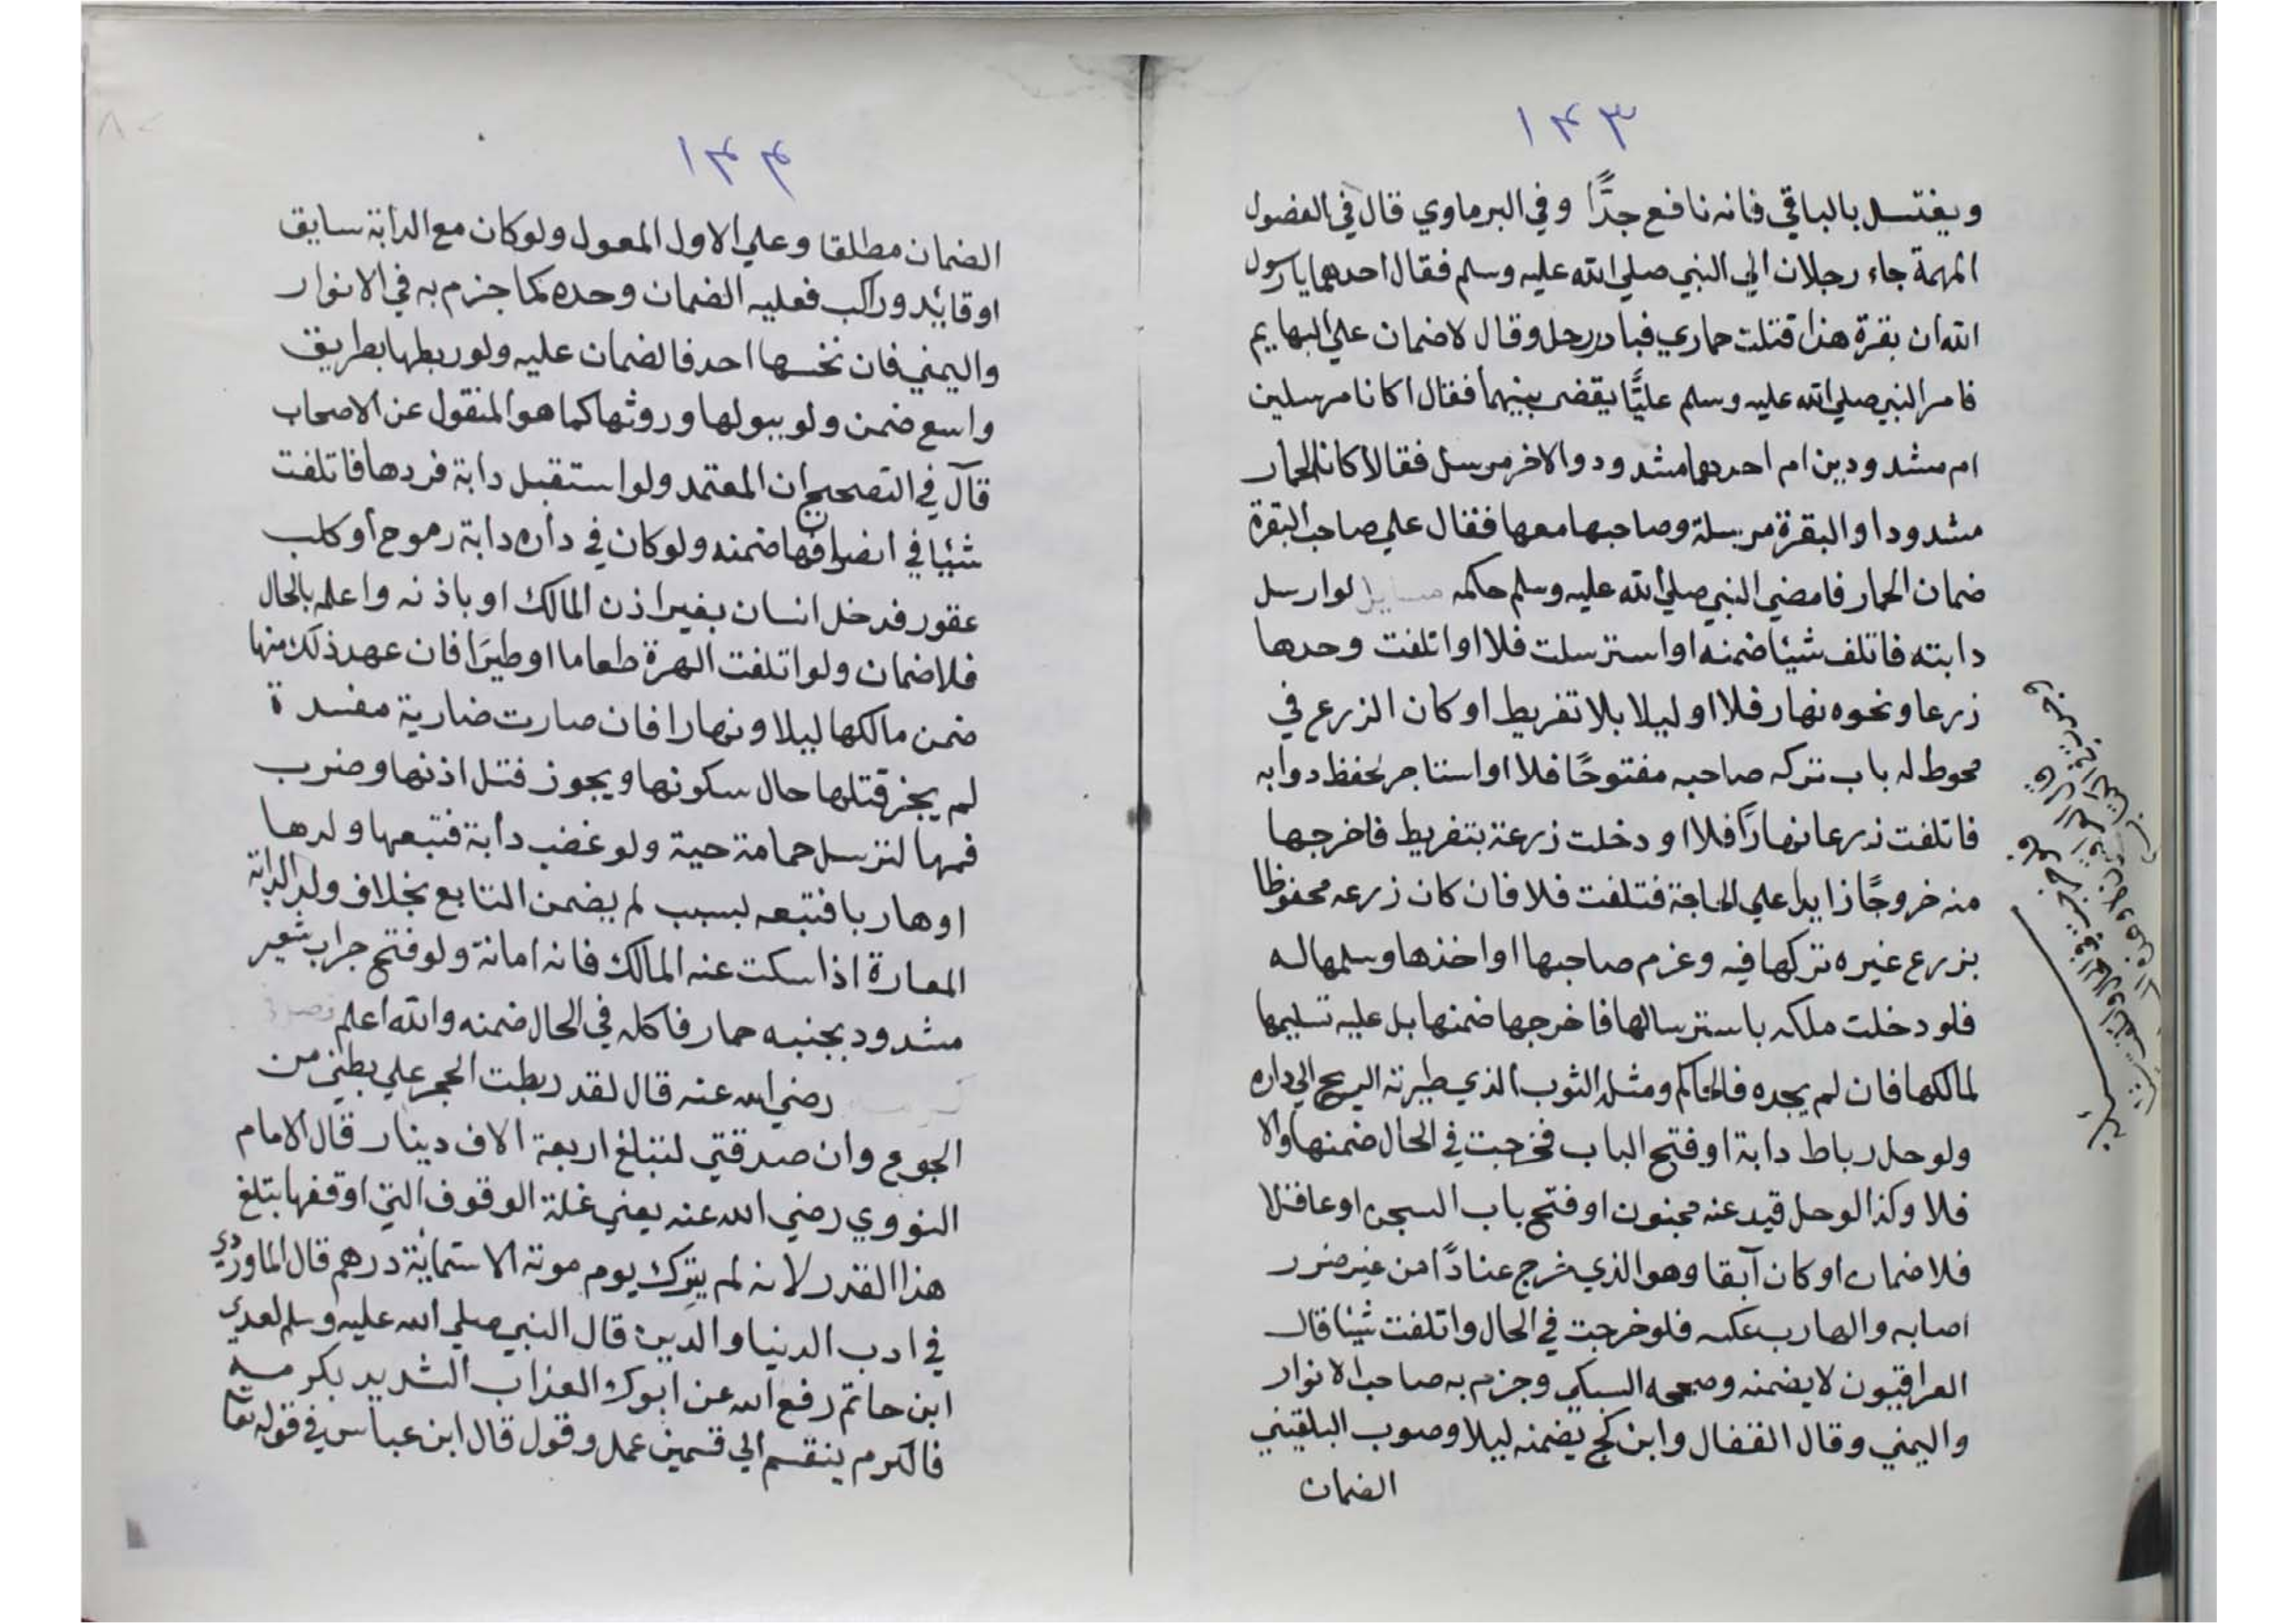 ١٤٣
ويغتسل بالباقي فانه نافع جدًّا وفي البرماوي قال في الفصول
المهمة جاء رجلان الي النبي صلي الله عليه وسلم فقال احدهما يا رسول
الله ان بقرة هذا قتلت حماري فبادر رجل وقال لا ضمان علي البهايم
فامر النبي صلي الله عليه وسلم عليًّا يقضي بينهما فقال اكانا مرسلين
ام مشدودين ام احدهما مشدود والاخر مرسل فقالا كان الحمار
مشدودا والبقرة مرسلة وصاحبها معها فقال علي صاحب البقرة
ضمان الحمار فامضي النبي صلي الله عليه وسلم حكمه مسايل لو ارسل
دابته فاتلف شيئا ضمنه او استرسلت فلا او اتلفت وحدها
زرعا ونحوه نهار فلا او ليلا بلا تفريط او كان الزرع في
محوط له باب تركه صاحبه مفتوحًا فلا او استاجر لحفظ دوابه
فاتلفت زرعا نهارًا فلا او دخلت زرعة بتفريط فاخرجها
منه خروجًا زايدا علي الحاجة فتلفت فلا فان كان زرعه محفوظا
بزرع غيره تركها فيه وغرم صاحبها او اخذها وسلمها له
فلو دخلت ملكه باسترسالها فاخرجها ضمنها بل عليه تسليمها
لمالكها فان لم يجده فالحاكم ومثله الثوب الذي طيرته الريح الي داره
ولو حل رباط دابة او فتح الباب فخرجت في الحال ضمنها والا
فلا وكذا لو حل قيد عنه مجنون او فتح باب السجن او عاقلا
فلا ضمان او كان آبقا وهو الذي خرج عنادًا من غير ضرر
اصابه والهارب عكسه فلو خرجت في الحال واتلفت شيئا قال
العراقيون لا يضمنه وصححه السبكي وجزم به صاحب الانوار
واليمني وقال القفال وابن كج يضمنه ليلا وصوب البلقيني
الضمان
١٤٤
الضمان مطلقا وعلي الاول المعول ولو كان مع الدابة سايق
او قائد وراكب فعليه الضمان وحده كما جزم به في الانوار
واليمني فان نخسها احد فالضمان عليه ولو ربطها بطريق
واسع ضمن ولو ببولها وروثها كما هو المنقول عن الاصحاب
قال في التصحيح ان المعتمد ولو استقبل دابة فردها فاتلفت
شيئا في انصرافها ضمنه ولو كان في داره دابة رموح أو كلب
عقور فدخل انسان بغير اذن المالك او باذنه واعلمه بالحال
فلا ضمان ولو اتلفت الهرة طعاما او طيرًا فان عهد ذلك منها
ضمن مالكها ليلا ونهارا فان صارت ضارية مفسدة
لم يجز قتلها حال سكونها ويجوز فتل اذنها وضرب
فمها لترسل حمامة حية ولو غضب دابة فتبعها ولدها
او هاربا فتبعه لسبب لم يضمن التابع بخلاف ولد الدابة
المعارة اذا سكت عنه المالك فانه امانة ولو فتح جراب شعير
مشدود بجنبه حمار فاكله في الحال ضمنه والله اعلم
رضي الله عنه قال لقد ربطت الحجر علي بطني من
الجوع وان صدقتي لتبلغ اربعة الاف دينار قال الامام
النووي رضي الله عنه يعني غلة الوقوف التي اوقفها تبلغ
هذا القدر لانه لم يترك يوم موته الا ستماية درهم قال الماوردي
في ادب الدنيا والدين قال النبي صلي الله عليه وسلم لعدي
ابن حاتم رفع الله عن ابوك العذاب الشديد بكرمه
فالكرم ينقسم الي قسمين عمل وقول قال ابن عباس في قوله تعا